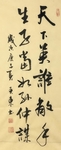 天下英雄誰敵手
生子當如孫仲謀